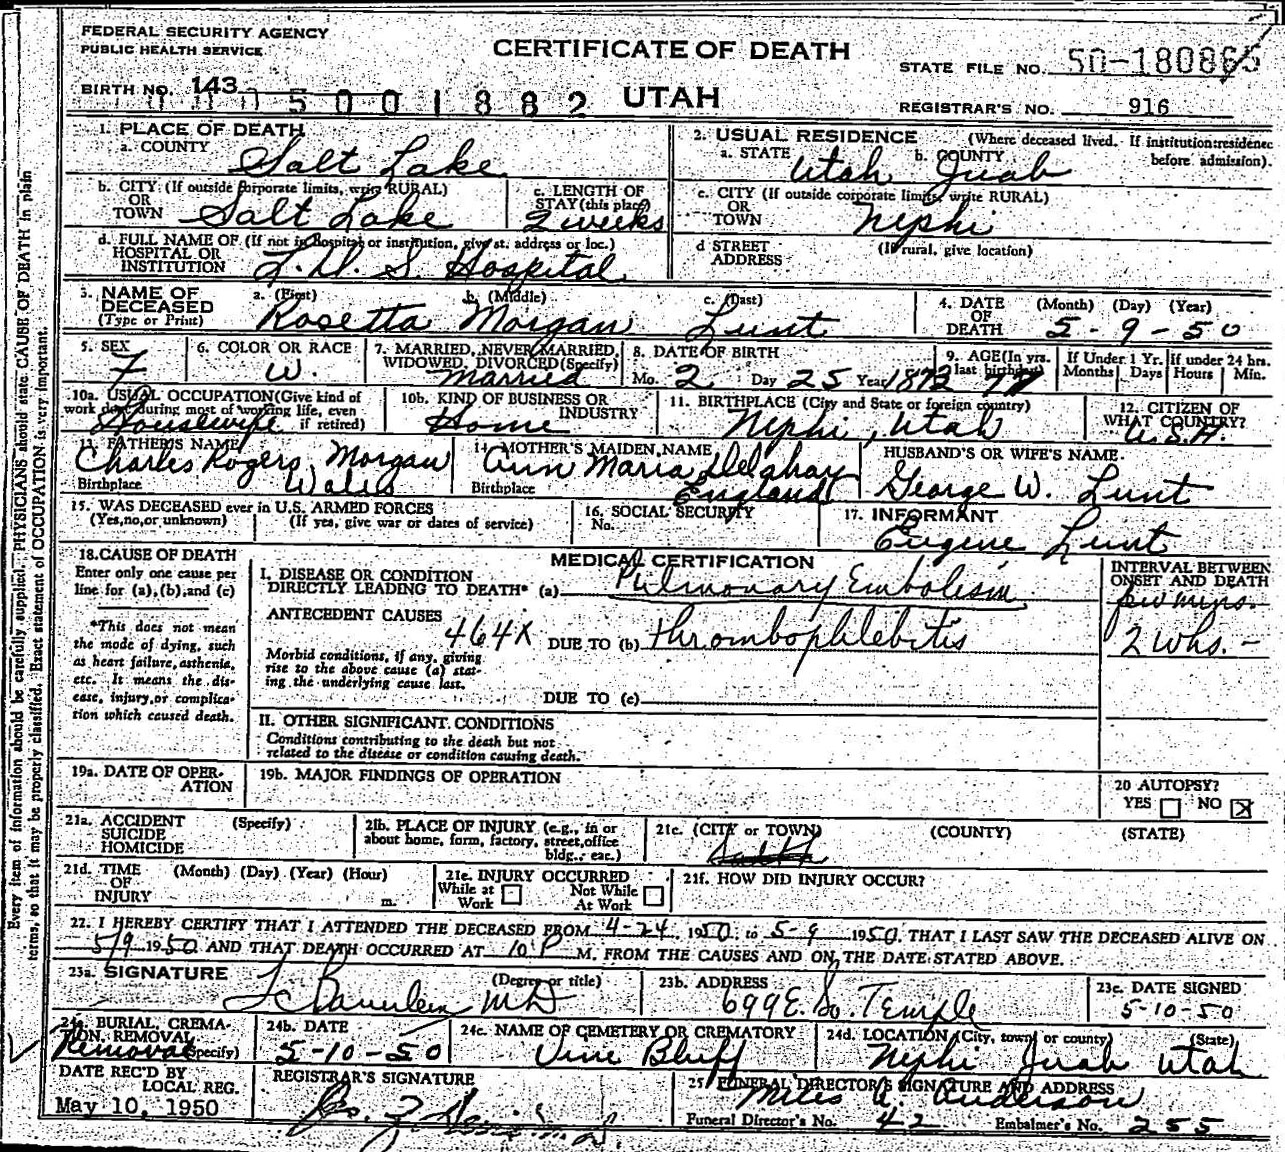 FEDERAL SECURITY AGENCY
PUBLIC HEALTH SERVICE
CERTIFICATE OF DEATH
UTAH
STATE FILE NO. 50-180865
BIRTH NO. 143
0005001882
REGISTRAR'S NO. 916
1. PLACE OF DEATH
a. COUNTY Salt Lake
2. USUAL RESIDENCE (Where deceased lived. If institution:residence before admission).
a. STATE Utah b. COUNTY Juab
b. CITY (If outside corporate limits, write RURAL) OR TOWN Salt Lake
c. LENGTH OF STAY (this place) 2 weeks
c. CITY (If outside corporate limits, write RURAL) OR TOWN Nephi
d. FULL NAME OF (If not in hospital or institution, give st. address or loc.) HOSPITAL OR INSTITUTION L.D.S Hospital
d STREET ADDRESS (If rural, give location)
3. NAME OF DECEASED (Type or Print)
a. (First) Rosetta b. (Middle) Morgan c. (Last) Lunt
4. DATE OF DEATH (Month) (Day) (Year) 5-9-50
5. SEX F
6. COLOR OR RACE W.
7. MARRIED, NEVER MARRIED, WIDOWED, DIVORCED (Specify) Married
8. DATE OF BIRTH Mo. 2 Day 25 Year 1873
9. AGE (In yrs. last birthday) 77
If Under 1 Yr. Months Days
If under 24 hrs. Hours Min.
10a. USUAL OCCUPATION (Give kind of work done during most of working life, even if retired) Housewife
10b. KIND OF BUSINESS OR INDUSTRY Home
11. BIRTHPLACE (City and State or foreign country) Nephi, Utah
12. CITIZEN OF WHAT COUNTRY? U.S.A.
13. FATHER'S NAME Charles Rogers Morgan
Birthplace Wales
14. MOTHER'S MAIDEN NAME Ann Maria Delahay
Birthplace England
HUSBAND'S OR WIFE'S NAME. George W. Lunt
15. WAS DECEASED ever in U.S. ARMED FORCES
(Yes,no,or unknown) (If yes, give war or dates of service)
16. SOCIAL SECURITY No.
17. INFORMANT Eugene Lunt
18. CAUSE OF DEATH
Enter only one cause per line for (a),(b),and (c)
*This does not mean the mode of dying, such as heart failure, asthenia, etc. It means the disease, injury, or complication which caused death.
MEDICAL CERTIFICATION
I. DISEASE OR CONDITION DIRECTLY LEADING TO DEATH* (a) Pulmonary Embolism
ANTECEDENT CAUSES 464X
DUE TO (b) thrombophlebitis
Morbid conditions, if any, giving rise to the above cause (a) stating the underlying cause last.
DUE TO (c)
INTERVAL BETWEEN ONSET AND DEATH
few mins.
2 whs. -
II. OTHER SIGNIFICANT CONDITIONS
Conditions contributing to the death but not related to the disease or condition causing death.
19a. DATE OF OPERATION
19b. MAJOR FINDINGS OF OPERATION
20 AUTOPSY?
YES NO X
21a. ACCIDENT SUICIDE HOMICIDE (Specify)
21b. PLACE OF INJURY (e.g., in or about home, form, factory, street, office bldg., eac.)
21c. (CITY or TOWN) (COUNTY) (STATE)
21d. TIME OF INJURY (Month) (Day) (Year) (Hour) m.
21e. INJURY OCCURRED While at Work Not While At Work
21f. HOW DID INJURY OCCUR?
22. I HEREBY CERTIFY THAT I ATTENDED THE DECEASED FROM 4-24, 1950, to 5-9 1950. THAT I LAST SAW THE DECEASED ALIVE ON
5/9 1950 AND THAT DEATH OCCURRED AT 10 P M. FROM THE CAUSES AND ON THE DATE STATED ABOVE.
23a. SIGNATURE (Degree or title) MD
23b. ADDRESS 699 E. So. Temple
23c. DATE SIGNED 5-10-50
24a. BURIAL, CREMATION, REMOVAL (Specify) Removal
24b. DATE 5-10-50
24c. NAME OF CEMETERY OR CREMATORY Vine Bluff
24d. LOCATION (City, town, or county) (State) Nephi Juab Utah
DATE REC'D BY LOCAL REG. May 10, 1950
REGISTRAR'S SIGNATURE
25 FUNERAL DIRECTOR'S SIGNATURE AND ADDRESS Miles A. Anderson
Funeral Director's No. 42 Embalmer's No. 255
Every item of information should be carefully supplied. PHYSICIANS should state CAUSE OF DEATH in plain
terms, so that it may be properly classified. Exact statement of OCCUPATION is very important.